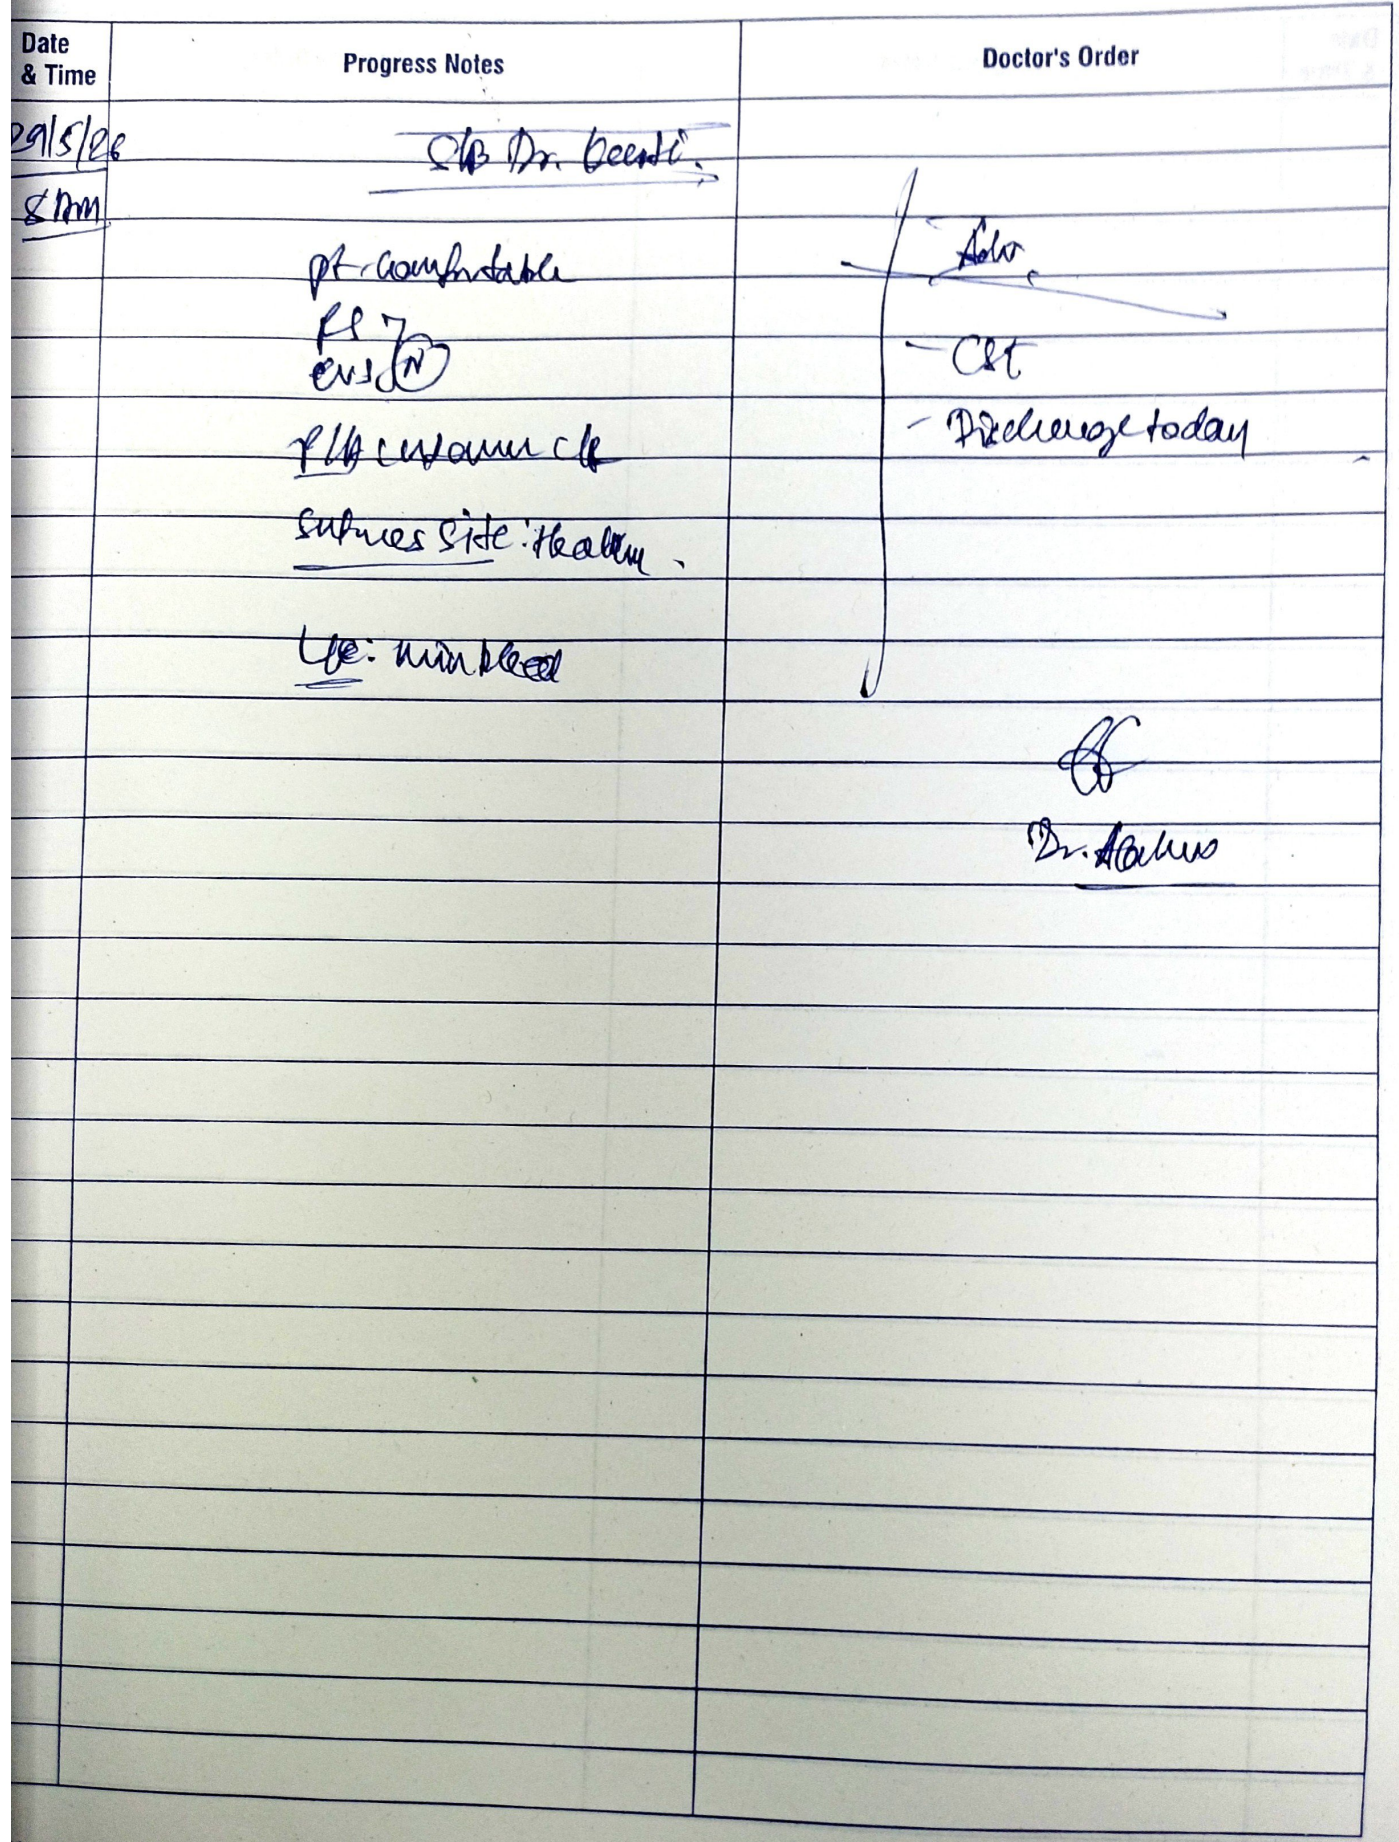 Date & Time
Progress Notes
Doctor's Order
29/5/26
S/B Dr.
8 AM
pt. comfortable
Adv
RS
CVS (N)
- CST
P/A
- Discharge today
Sutures site: Healthy.
L/E: min bleed
Dr.